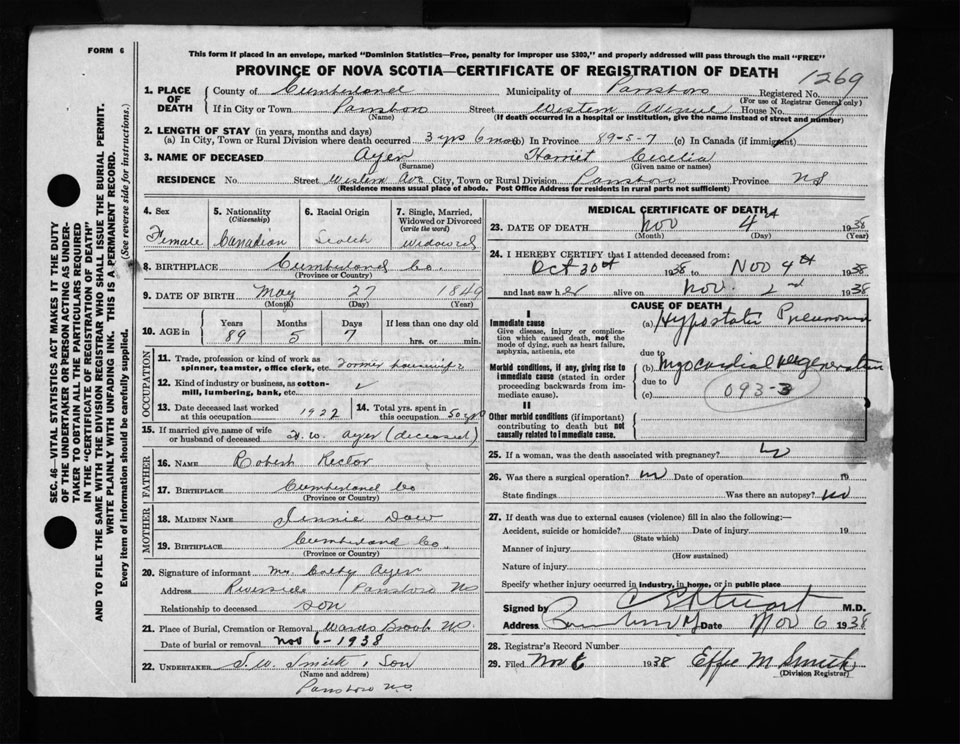 FORM 6
This form if placed in an envelope, marked "Dominion Statistics—Free, penalty for improper use $300," and properly addressed will pass through the mail "FREE"
PROVINCE OF NOVA SCOTIA—CERTIFICATE OF REGISTRATION OF DEATH
1269
1. PLACE OF DEATH
County of Cumberland Municipality of Parrsboro Registered No.
(For use of Registrar General only)
If in City or Town Parrsboro Street Western Avenue House No.
(Name) (If death occurred in a hospital or institution, give the name instead of street and number)
2. LENGTH OF STAY (in years, months and days)
(a) In City, Town or Rural Division where death occurred 3 yrs 6 mos (b) In Province 89-5-7 (c) In Canada (if immigrant)
3. NAME OF DECEASED Ayer Harriet Cecelia
(Surname) (Given name or names)
RESIDENCE No. Street Western Ave City, Town or Rural Division Parrsboro Province NS
(Residence means usual place of abode. Post Office Address for residents in rural parts not sufficient)
4. Sex Female
5. Nationality (Citizenship) Canadian
6. Racial Origin Scotch
7. Single, Married, Widowed or Divorced (write the word) Widowed
8. BIRTHPLACE Cumberland Co.
(Province or Country)
9. DATE OF BIRTH May 27 1849
(Month) (Day) (Year)
10. AGE in Years 89 Months 5 Days 7 If less than one day old hrs. or min.
OCCUPATION
11. Trade, profession or kind of work as spinner, teamster, office clerk, etc. Former housewife
12. Kind of industry or business, as cotton-mill, lumbering, bank, etc. ✓
13. Date deceased last worked at this occupation 1922
14. Total yrs. spent in this occupation 50 yrs
15. If married give name of wife or husband of deceased W. Ayer (deceased)
FATHER
16. NAME Robert Rector
17. BIRTHPLACE Cumberland Co
(Province or Country)
MOTHER
18. MAIDEN NAME Jennie Dow
19. BIRTHPLACE Cumberland Co.
(Province or Country)
20. Signature of informant Mr. Colby Ayer
Address Riverside Parrsboro NS
Relationship to deceased son
21. Place of Burial, Cremation or Removal Wards Brook NS.
Date of burial or removal Nov 6-1938
22. UNDERTAKER Smith & Son
(Name and address)
Parrsboro N.S.
MEDICAL CERTIFICATE OF DEATH
23. DATE OF DEATH Nov 4th 1938
(Month) (Day) (Year)
24. I HEREBY CERTIFY that I attended deceased from:
Oct 30th 1938 to Nov 4th 1938
and last saw her alive on Nov. 2nd 1938
CAUSE OF DEATH
I
Immediate cause
Give disease, injury or complication which caused death, not the mode of dying, such as heart failure, asphyxia, asthenia, etc
(a) Hypostatic Pneumonia
due to
Morbid conditions, if any, giving rise to immediate cause (stated in order proceeding backwards from immediate cause).
(b) Myocardial Degeneration
due to
(c) 093-3
II
Other morbid conditions (if important) contributing to death but not causally related to immediate cause.
25. If a woman, was the death associated with pregnancy? No
26. Was there a surgical operation? no Date of operation 19
State findings Was there an autopsy? no
27. If death was due to external causes (violence) fill in also the following:—
Accident, suicide or homicide? Date of injury 19
(State which)
Manner of injury
(How sustained)
Nature of injury
Specify whether injury occurred in industry, in home, or in public place
Signed by Stuart M.D.
Address Date Nov 6 1938
28. Registrar's Record Number
29. Filed Nov 6 1938 Effie M Smith
(Division Registrar)
SEC. 46—VITAL STATISTICS ACT MAKES IT THE DUTY
OF THE UNDERTAKER OR PERSON ACTING AS UNDER-
TAKER TO OBTAIN ALL THE PARTICULARS REQUIRED
IN THE "CERTIFICATE OF REGISTRATION OF DEATH"
AND TO FILE THE SAME WITH THE DIVISION REGISTRAR WHO SHALL ISSUE THE BURIAL PERMIT.
WRITE PLAINLY WITH UNFADING INK. THIS IS A PERMANENT RECORD.
Every item of information should be carefully supplied. (See reverse side for instructions.)